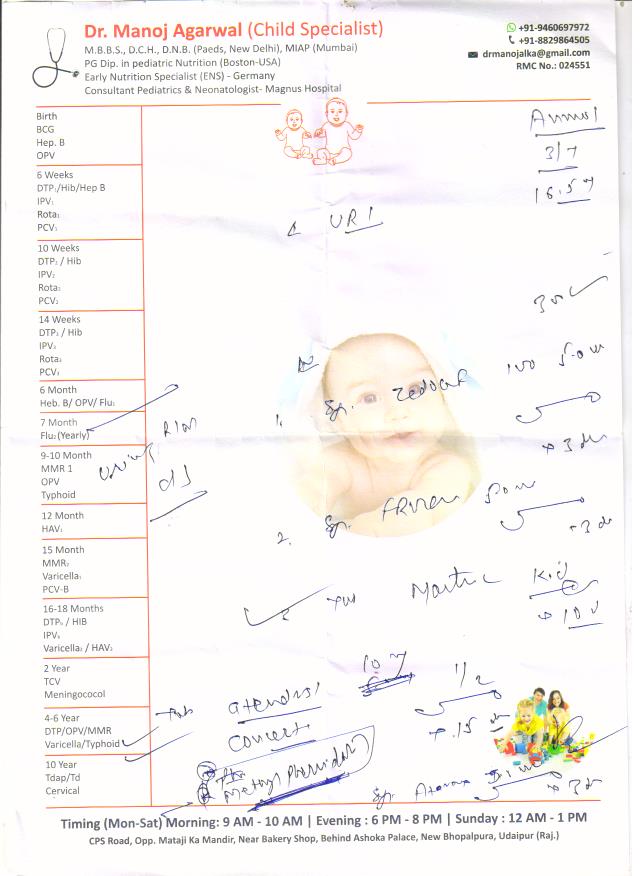 Dr. Manoj Agarwal (Child Specialist)
M.B.B.S., D.C.H., D.N.B. (Paeds, New Delhi), MIAP (Mumbai)
PG Dip. in pediatric Nutrition (Boston-USA)
Early Nutrition Specialist (ENS) - Germany
Consultant Pediatrics & Neonatologist- Magnus Hospital
+91-9460697972
+91-8829864505
drmanojalka@gmail.com
RMC No.: 024551
Birth
BCG
Hep. B
OPV
Anmol
3/7
6 Weeks
DTP₁/Hib/Hep B
IPV₁
Rota₁
PCV₁
16.5
URI
10 Weeks
DTP₂ / Hib
IPV₂
Rota₂
PCV₂
14 Weeks
DTP₃ / Hib
IPV₃
Rota₃
PCV₃
6 Month
Heb. B/ OPV/ Flu₁
7 Month
Flu₂ (Yearly)
1. Syp.
x 3 d
9-10 Month
MMR 1
OPV
Typhoid
12 Month
HAV₁
2. Syp.
15 Month
MMR₂
Varicella₁
PCV-B
Kid
16-18 Months
DTP₄ / HIB
IPV₄
Varicella₂ / HAV₂
x 10 d
2 Year
TCV
Meningococol
1/2
4-6 Year
DTP/OPV/MMR
Varicella/Typhoid
Concert
x 15 d
10 Year
Tdap/Td
Cervical
Syp.
x 3 d
Timing (Mon-Sat) Morning: 9 AM - 10 AM | Evening : 6 PM - 8 PM | Sunday : 12 AM - 1 PM
CPS Road, Opp. Mataji Ka Mandir, Near Bakery Shop, Behind Ashoka Palace, New Bhopalpura, Udaipur (Raj.)